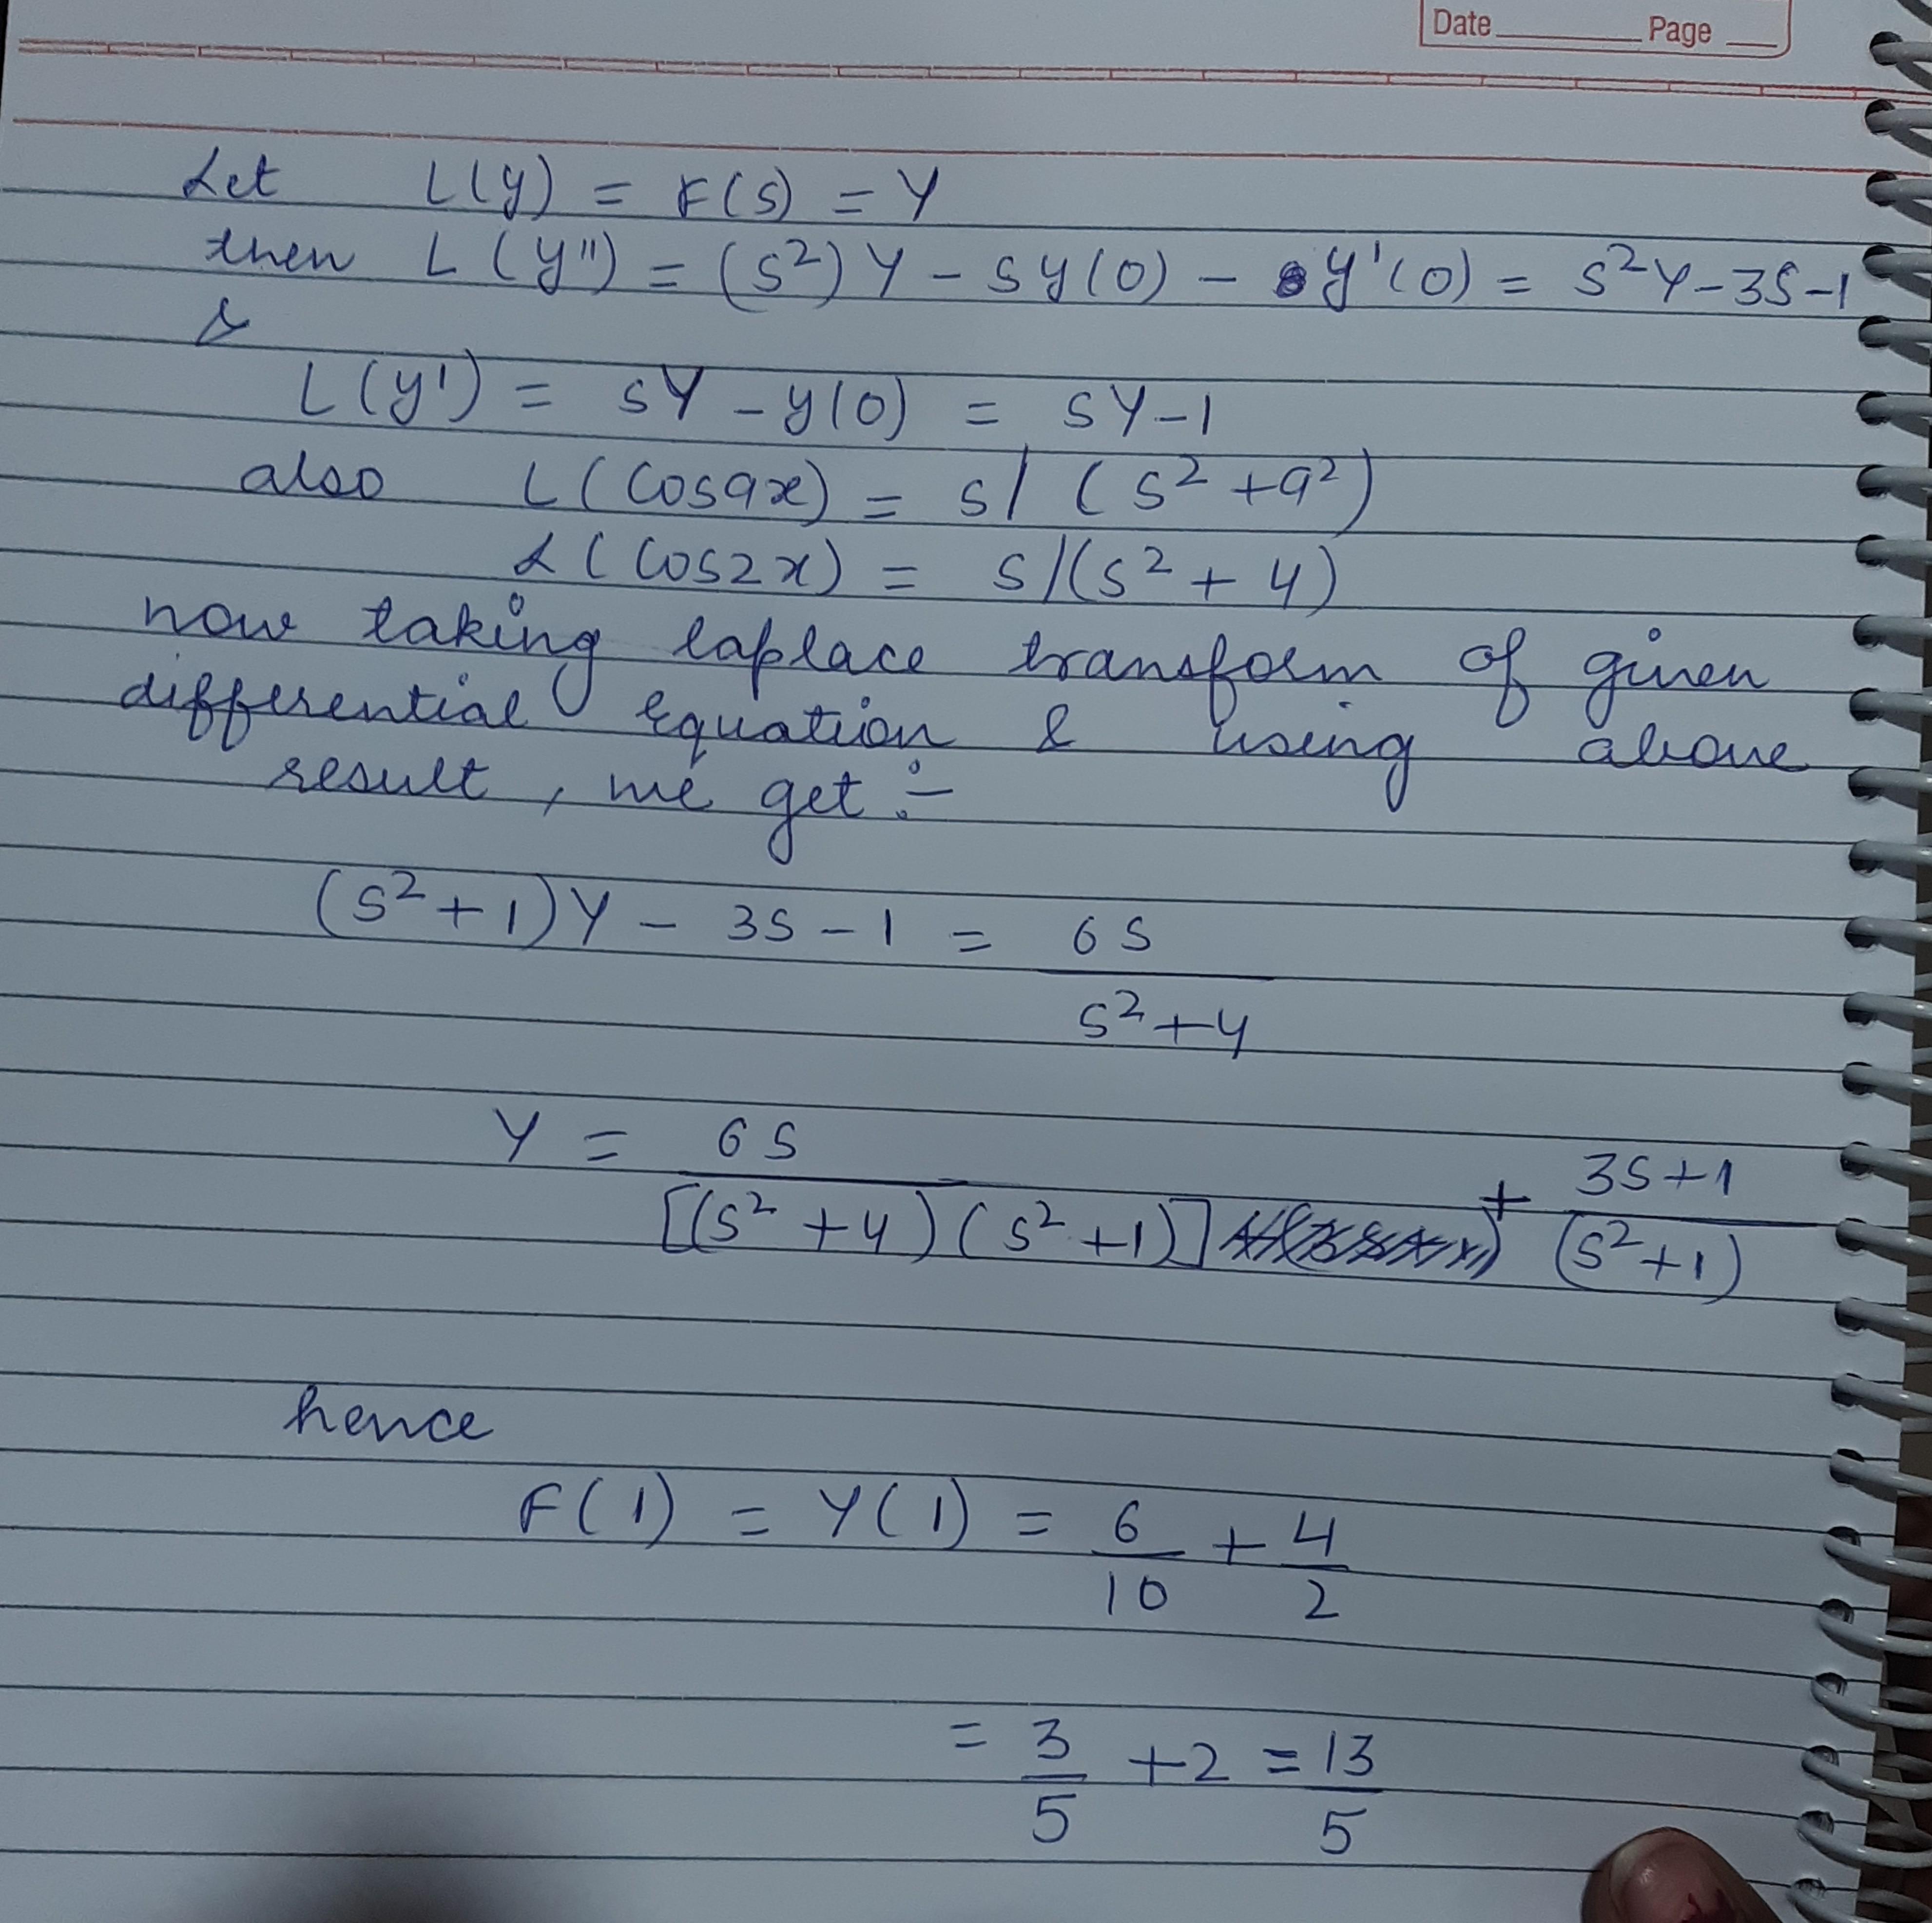 Date Page
Let L(y) = F(s) = Y
then L(y'') = (s²)Y - sy(0) - y'(0) = s²Y-3S-1
&
L(y') = sY - y(0) = sY-1
also L(cosax) = s/(s²+a²)
L(cos2x) = s/(s²+4)
now taking laplace transform of given
differential equation & using above
result, we get :-
(s²+1)Y - 3S - 1 = 6S
s²+4
Y = 6S + 3S+1
[(s²+4)(s²+1)] (s²+1)
hence
F(1) = Y(1) = 6 + 4
10 2
= 3 +2 = 13
5 5